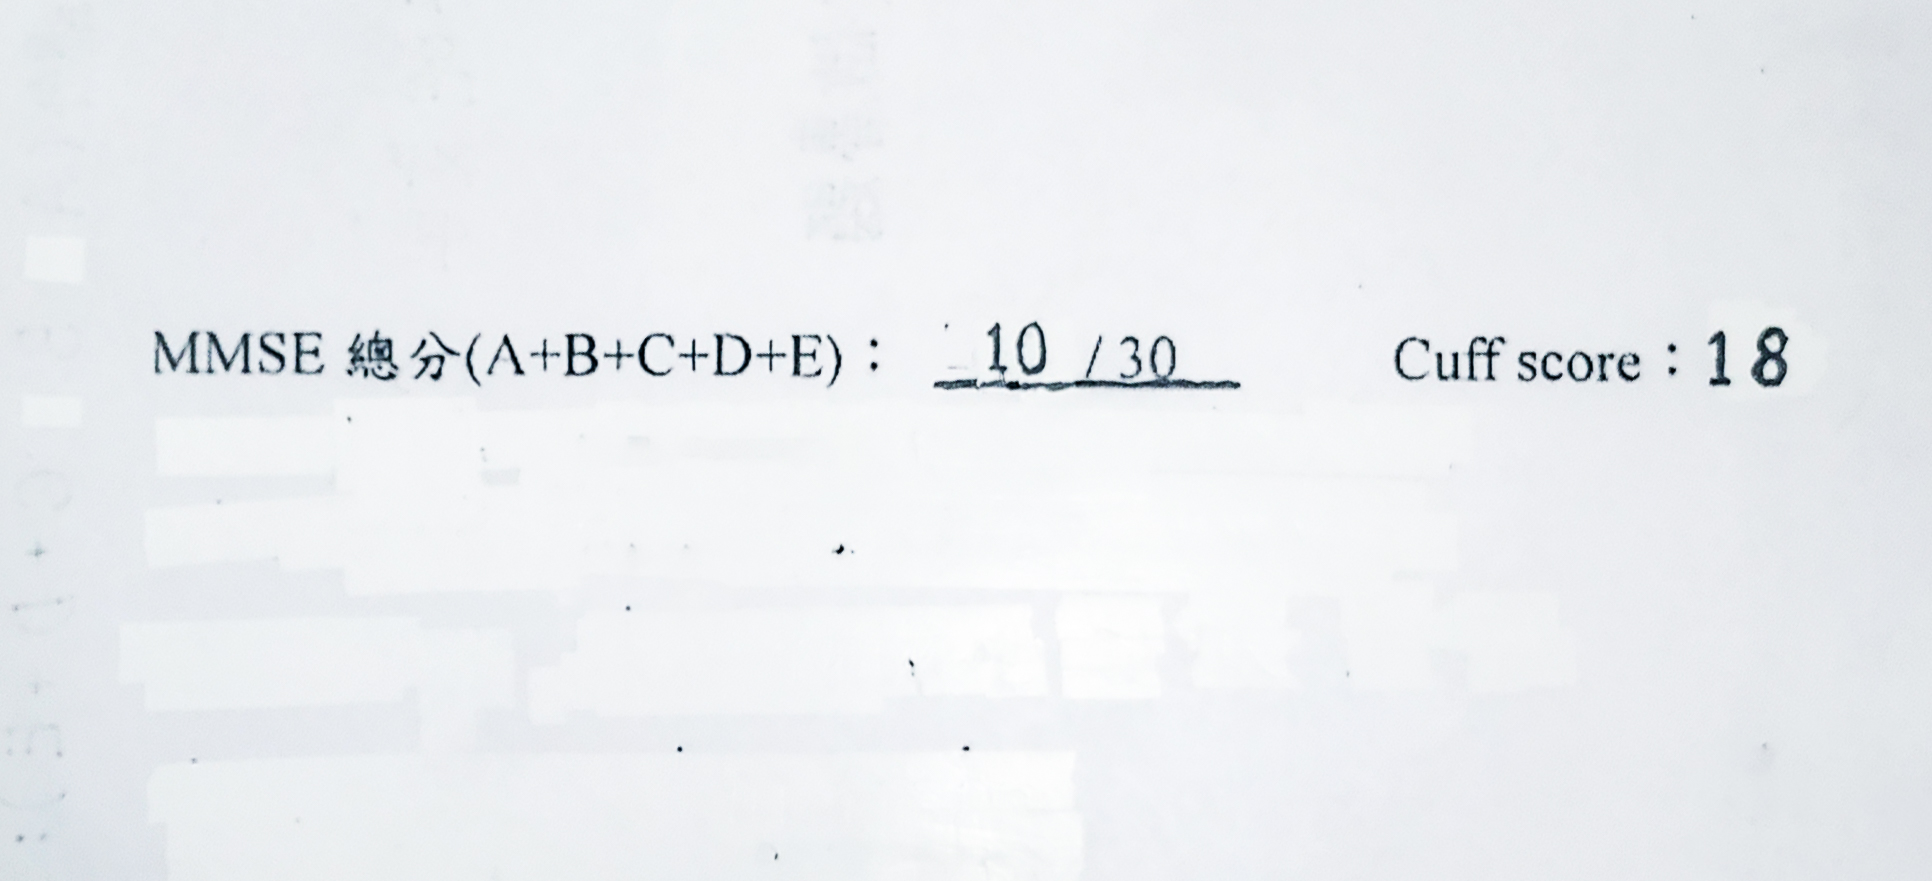 MMSE 總分(A+B+C+D+E)： 10 /30 Cuff score：18